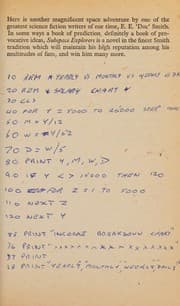 Here is another magnificent space adventure by one of the
greatest science fiction writers of our time, E. E. 'Doc' Smith.
In some ways a book of prediction, definitely a book of pro-
vocative ideas, Subspace Explorers is a novel in the finest Smith
tradition which will maintain his high reputation among his
multitudes of fans, and win him many more.
10 REM A YEARLY VS MONTHLY VS WEEKLY
20 REM SALARY CHART
30 CLS
40 FOR Y = 5000 TO 25000 STEP
50 M = Y/12
60 W = Y/52
70 D = W/5
80 PRINT Y, M, W, D
90 IF Y <> 15000 THEN 120
100 FOR Z = 1 TO 5000
110 NEXT Z
120 NEXT Y
35 PRINT "INCOME BREAKDOWN CHART"
36 PRINT
37 PRINT
38 PRINT "YEARLY", "MONTHLY", "WEEKLY", "DAILY"